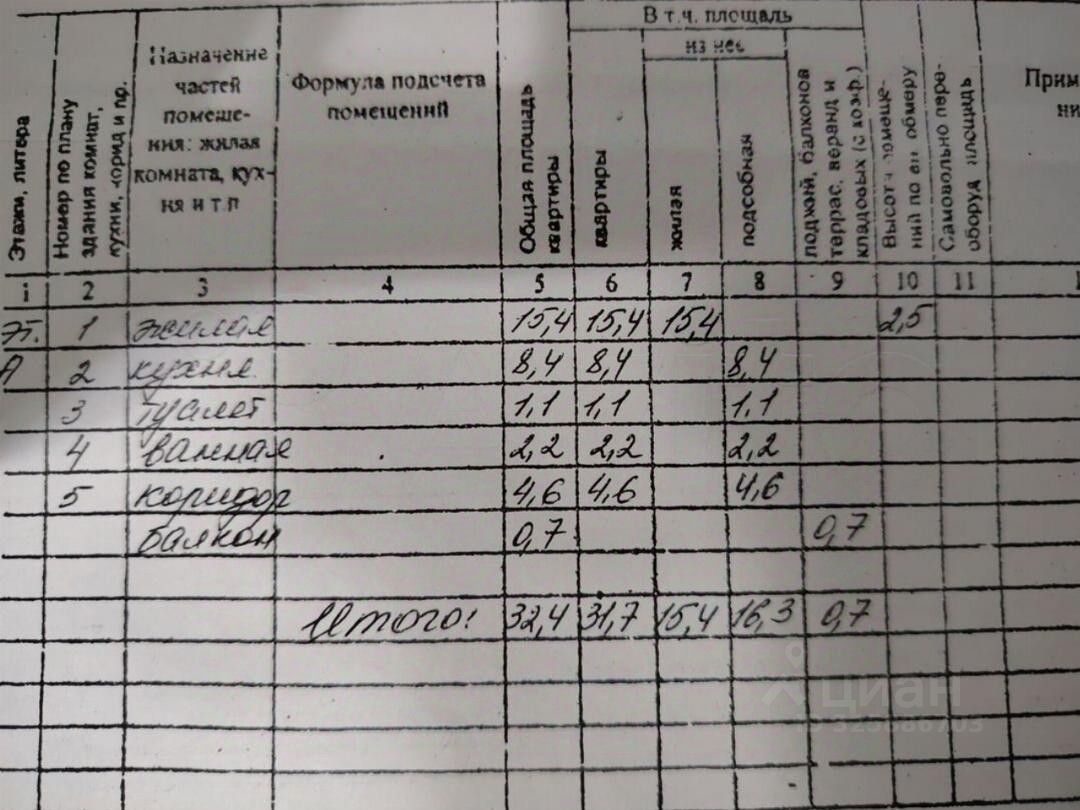 В т.ч. площадь
из нее
Этажи, литера
Номер по плану
здания комнат,
кухни, корид и пр.
Назначение
частей
помеще-
ния: жилая
комната, кух-
ня и т.п
Формула подсчета
помещений
Общая площадь
квартиры
квартиры
жилая
подсобная
лоджий, балконов
террас, веранд и
кладовых (с коэф.)
Высота помеще-
ний по вн обмеру
Самовольно пере-
оборуд площадь
Прим
ни
1 2 3 4 5 6 7 8 9 10 11 1
эт. 1 жилая 15,4 15,4 15,4 2,5
А 2 кухня 8,4 8,4 8,4
3 туалет 1,1 1,1 1,1
4 ванная 2,2 2,2 2,2
5 коридор 4,6 4,6 4,6
балкон 0,7 0,7
Итого: 32,4 31,7 15,4 16,3 0,7
циан